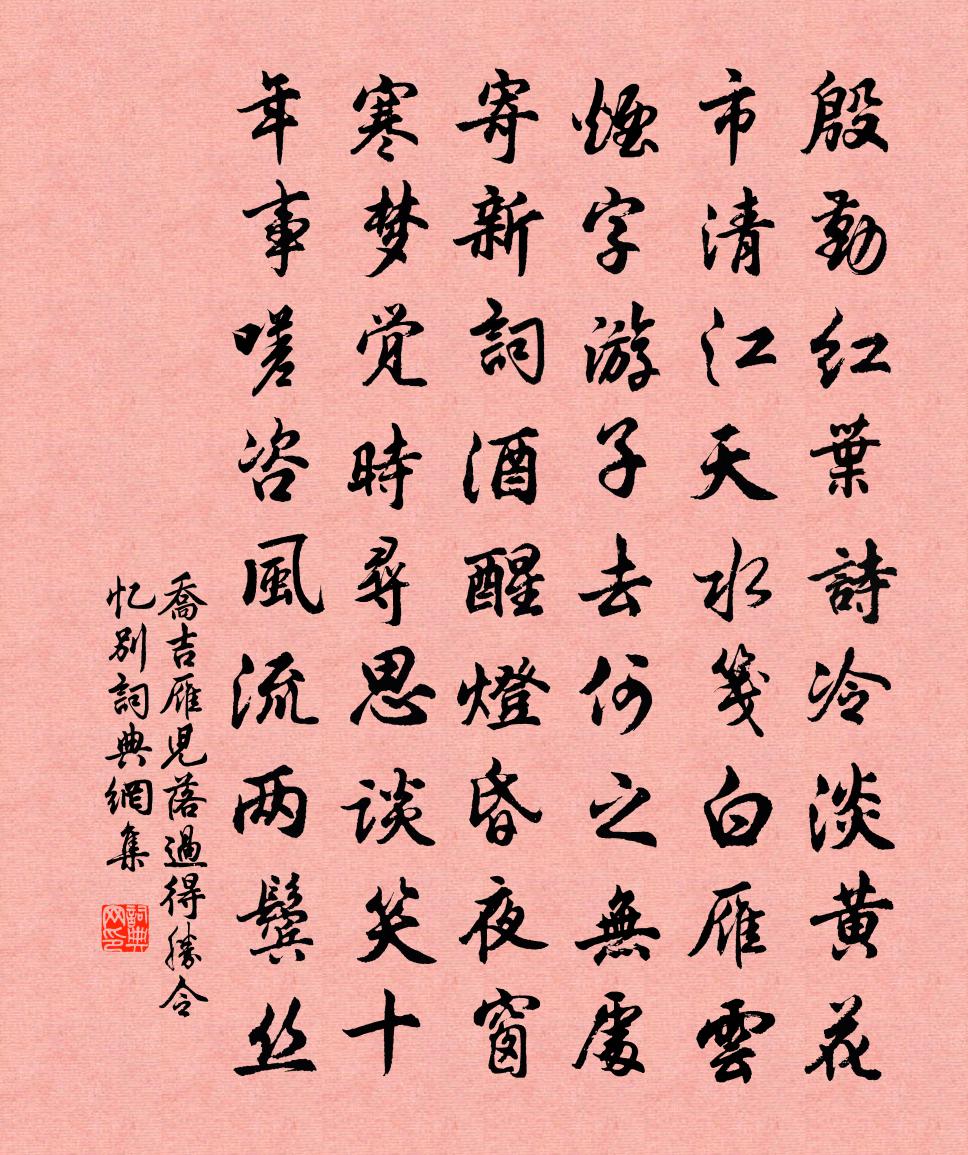 殷勤红葉詩冷淡黄花
市清江天水箋白雁雲
煙字游子去何之無處
寄新詞酒醒燈昏夜窗
寒梦觉時尋思談笑十
年事嗟咨風流两鬓丝
喬吉雁児落過得勝令
忆别詞典網集
詞典网印